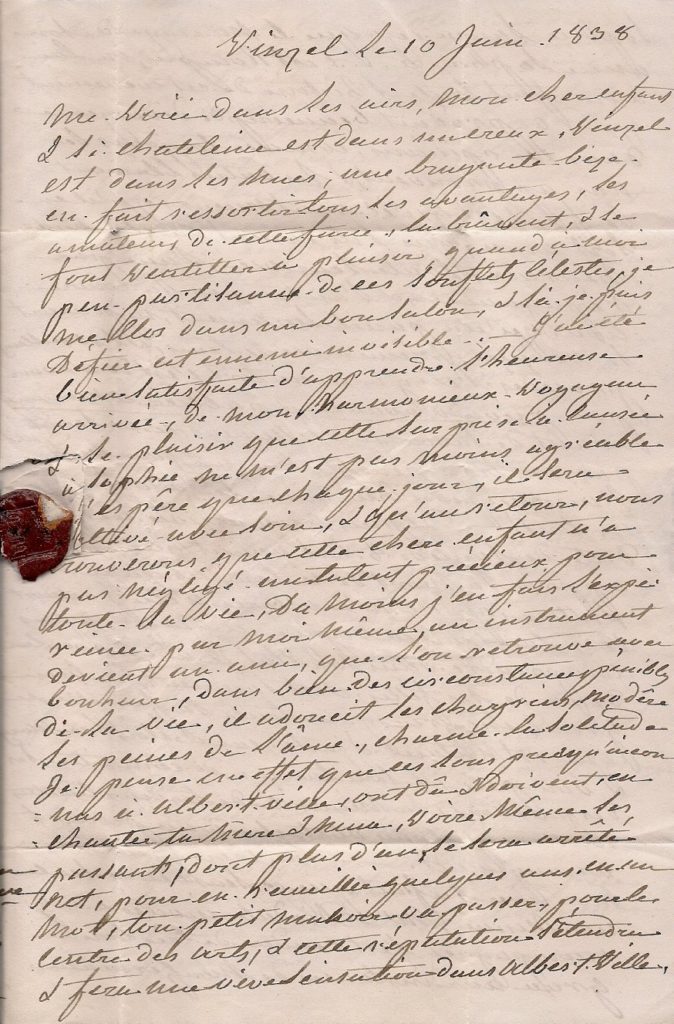 Vinzel Le 10 Juin. 1838
Me voici dans les airs, mon cher enfant
& si chateleine est dans un creux, Vinzel
est dans les nues; une bruyante bise.
en fait ressortir tous les avantages, les
amateurs de cette furie. la brûment, & se
font ventiller à plaisir, quand à moi
peu partisanne de ces soufflets célestes, je
me clos dans un bon salon, & là je puis
Défier cet ennemi invisible... J'ai été
bien satisfaite d'apprendre l'heureuse
arrivée, de mon harmonieux voyageur
& le plaisir que cette surprise a causée
à Sophie ne m'est pas moins agréable
J'espère que chaque jour, il sera
cultivé avec soin, & qu'au retour, nous
trouverons que cette chere enfant n'a
pas négligé un talent précieux pour
toute la vie, Du moins j'en fais l'expé-
rience par moi même, un instrument
devient un ami, que l'on retrouve avec
bonheur, dans bien des circonstances pénibles
de la vie, il adoucit les chagrins, modère
les peines de l'âme, charme la solitude
Je pense en effet que ces sons presqu'incon
=nus à Albertville, ont dû & doivent, en
=chanter ta mère & Nina, voire même les
passants, dont plus d'un, se sera arrêté
net, pour en recueillir quelques uns, en un
mot, ton petit manoir va passer, pour le
Centre des arts, & cette réputation s'étendra
& fera une vive sensation dans Albert-Ville,